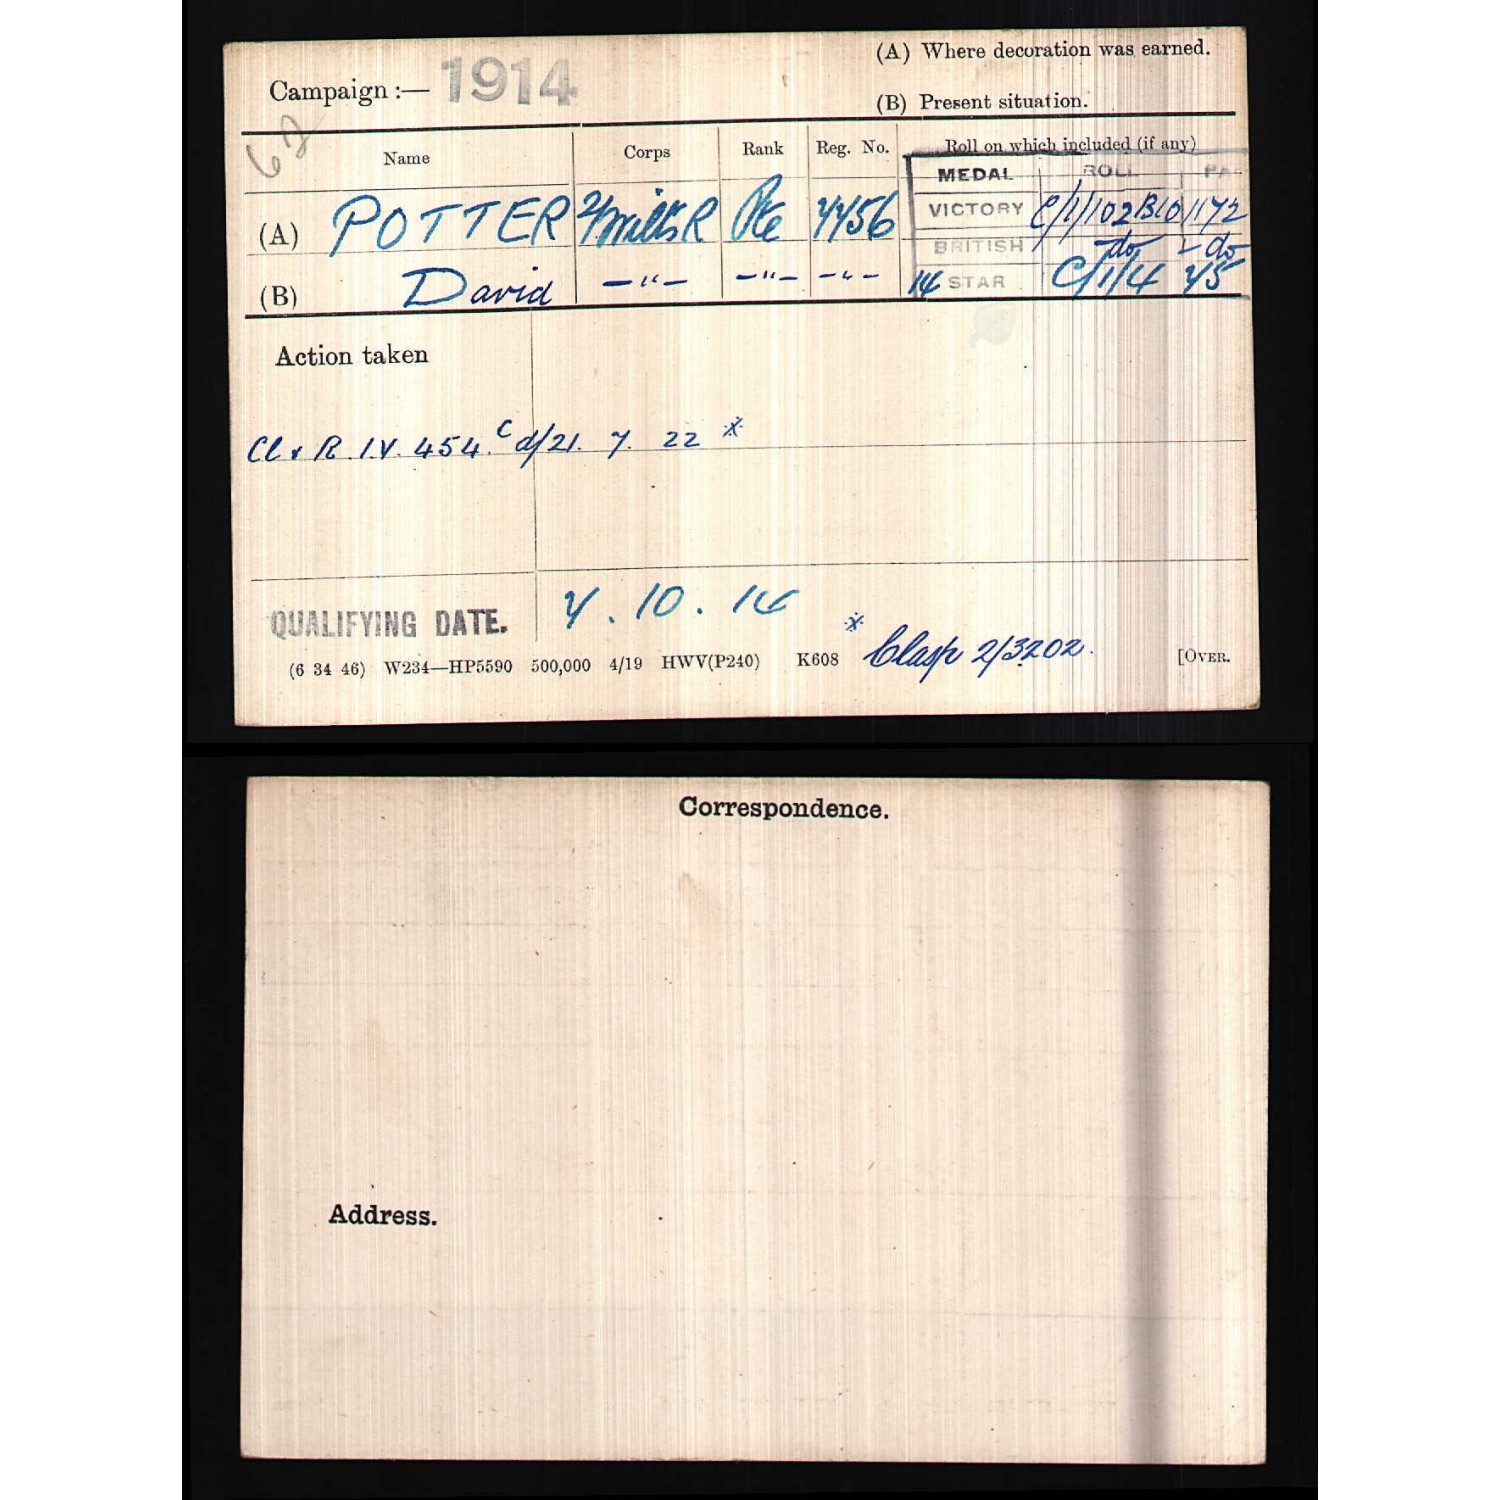 Campaign :— 1914
(A) Where decoration was earned.
(B) Present situation.
62
Name Corps Rank Reg. No. Roll on which included (if any)
MEDAL ROLL PA
(A) POTTER 2/Wilts R Pte 7756 VICTORY C/1/102B10 1172
BRITISH do - do
(B) David —"— —"— —"— 14 STAR C/1/4 75
Action taken
Cl & R. I.V. 454.C d/21. 7. 22 ※
QUALIFYING DATE. 7. 10. 14
※ Clasp 2/3202.
(6 34 46) W234—HP5590 500,000 4/19 HWV(P240) K608 [OVER.
Correspondence.
Address.